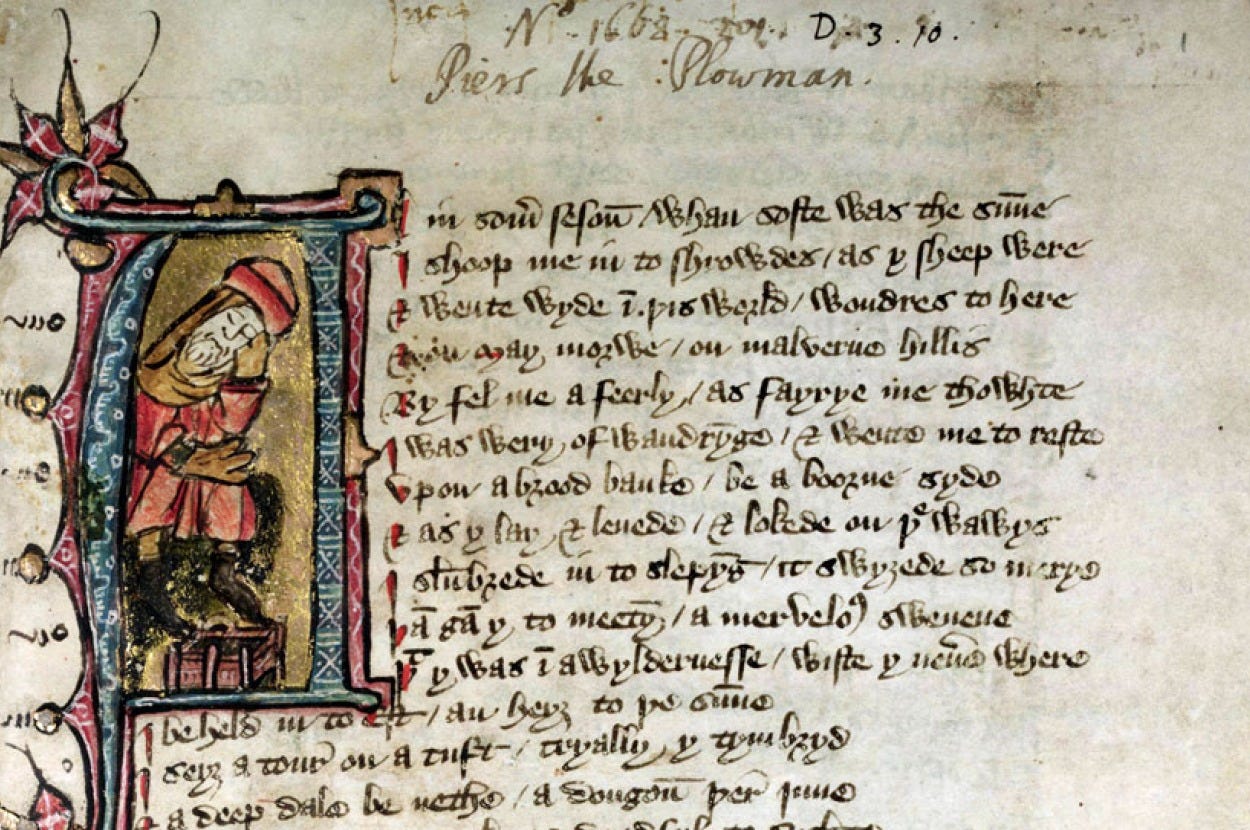 No. 1668. D. 3. 10.
Piers the Plowman.
in som̄ sesou̅ / whan softe was the su̅ne
I shoop me in to shrowdes / as y sheep were
& wente wyde ī þis world / wondres to here
on may morwe / on malverne hillis
By fel me a feerly / as fayrye me thowhte
I was wery of wandrȳge / & wente me to reste
Vpon a brood banke / be a boorne syde
& as y lay & lenede / & lokede on þe watrys
I slu̅brede in to slepȳg / it swyȝede so merye
þā gā y to meetȳ / a mervelo9 swevene
þt y was ī a wyldernesse / wiste y nevͬe where
I beheld in to est / an heyȝ to þe su̅ne
I seyȝ a tour on a tuft / tryally y tymbryd
& a deep dale be nethe / a dongou̅ þer inne